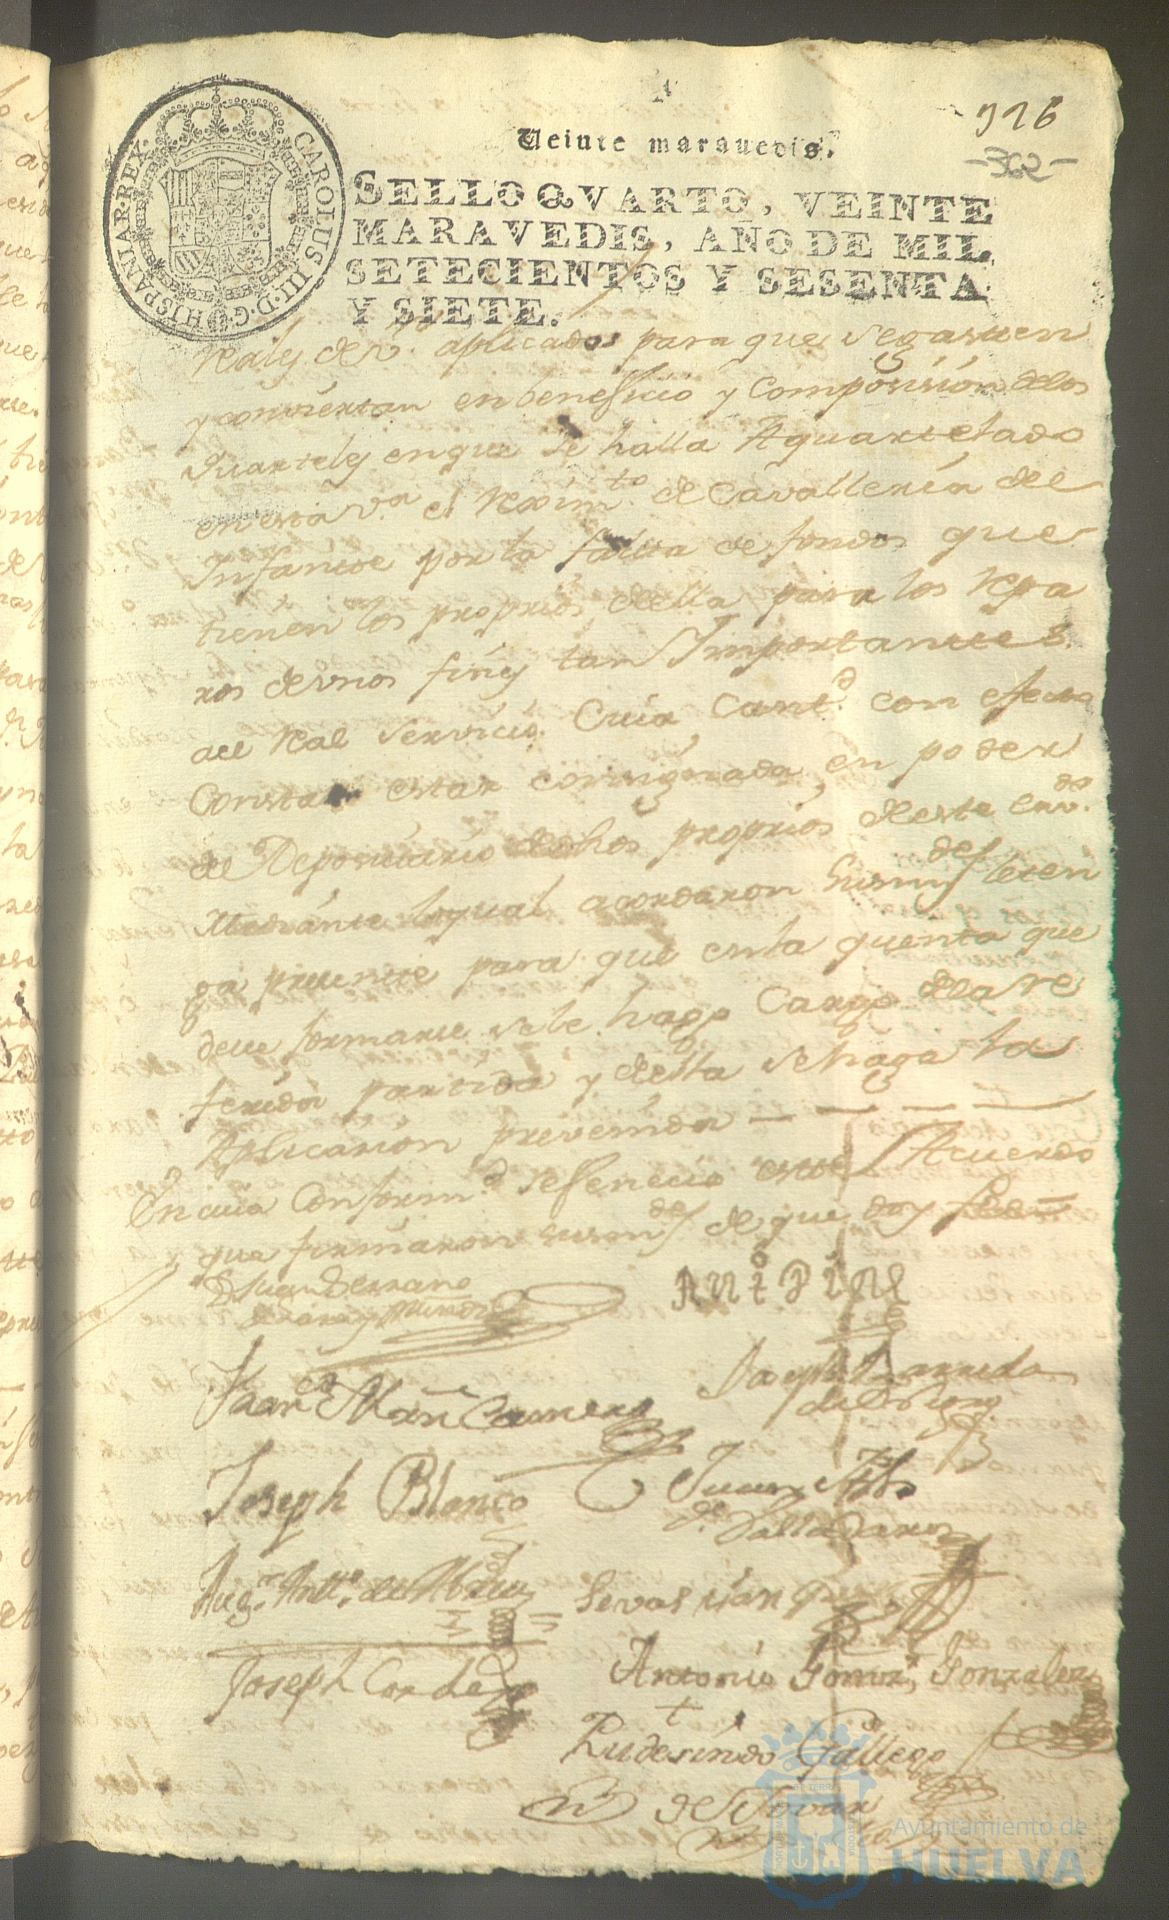 926
-362-
Veinte maravedis.
CAROLUS III·D·G·HISPANIAR·REX·
SELLO QVARTO, VEINTE
MARAVEDIS, AÑO DE MIL
SETECIENTOS Y SESENTA
Y SIETE.
Reales de vn. aplicados para que se gasten
y conviertan en beneficio y composision delos
Quarteles en que se halla Aquartelado
en esta va. el Reximto. de Cavalleria del
Infante por la falta de fondos que
tienen los proprios della para los Repa
ros de unos fines tan Importantes
ael Real servicio Cuia Cantd. con efecto
Consta estar consignada en poder
del Depositario dedhos proprios deste
Mediante loqual acordaron susmrds. seten
ga presente para que enla quenta que
deve formarse sele haga Cargo dela re
ferida partida y della sehaga la
Aplicasion prevenida
En cuia Conformd. sefenecio este Acuerdo
que firmaron susmds. de que doy fee
Dn. Juan Serrano
Juan Mrn. Camero
Joseph Barreda
Joseph Blanco
Juan
de Valladares
Antto. de
Sevastian
Joseph Cordero
Antonio Gomez Gonzalez
Rudesindo Gallego
de Tovar
Ayuntamiento de
HUELVA